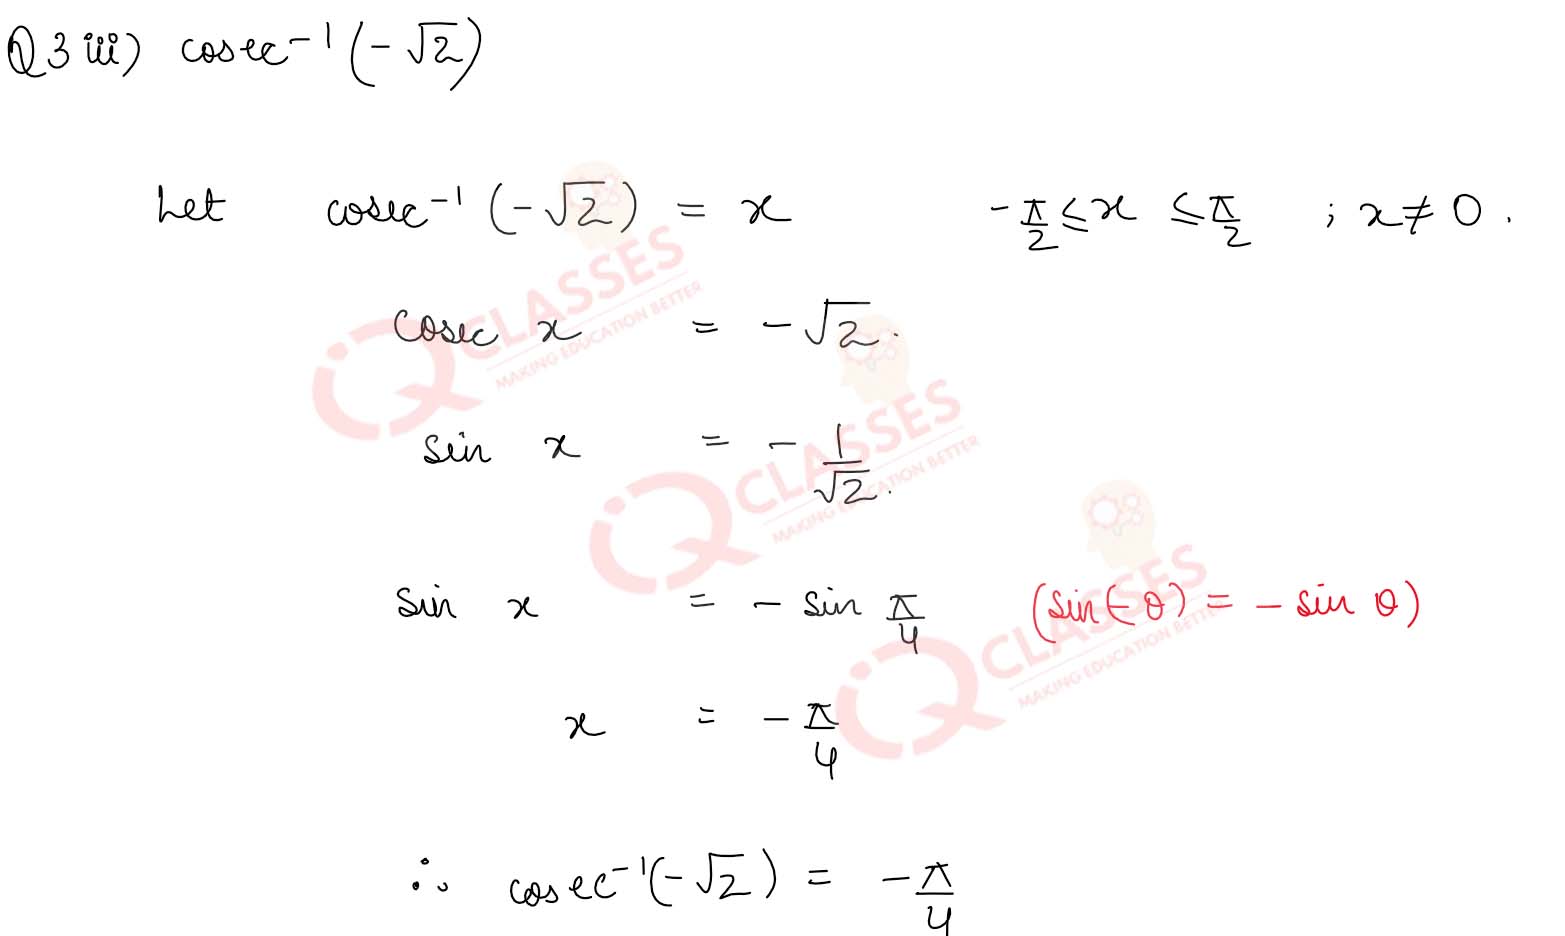 Q3 iii) cosec⁻¹(-√2)
Let cosec⁻¹(-√2) = x -π/2 ≤ x ≤ π/2 ; x ≠ 0.
cosec x = -√2.
sin x = -1/√2.
sin x = - sin π/4 (sin(-θ) = - sin θ)
x = -π/4
∴ cosec⁻¹(-√2) = -π/4
iQ CLASSES
MAKING EDUCATION BETTER
iQ CLASSES
MAKING EDUCATION BETTER
iQ CLASSES
MAKING EDUCATION BETTER